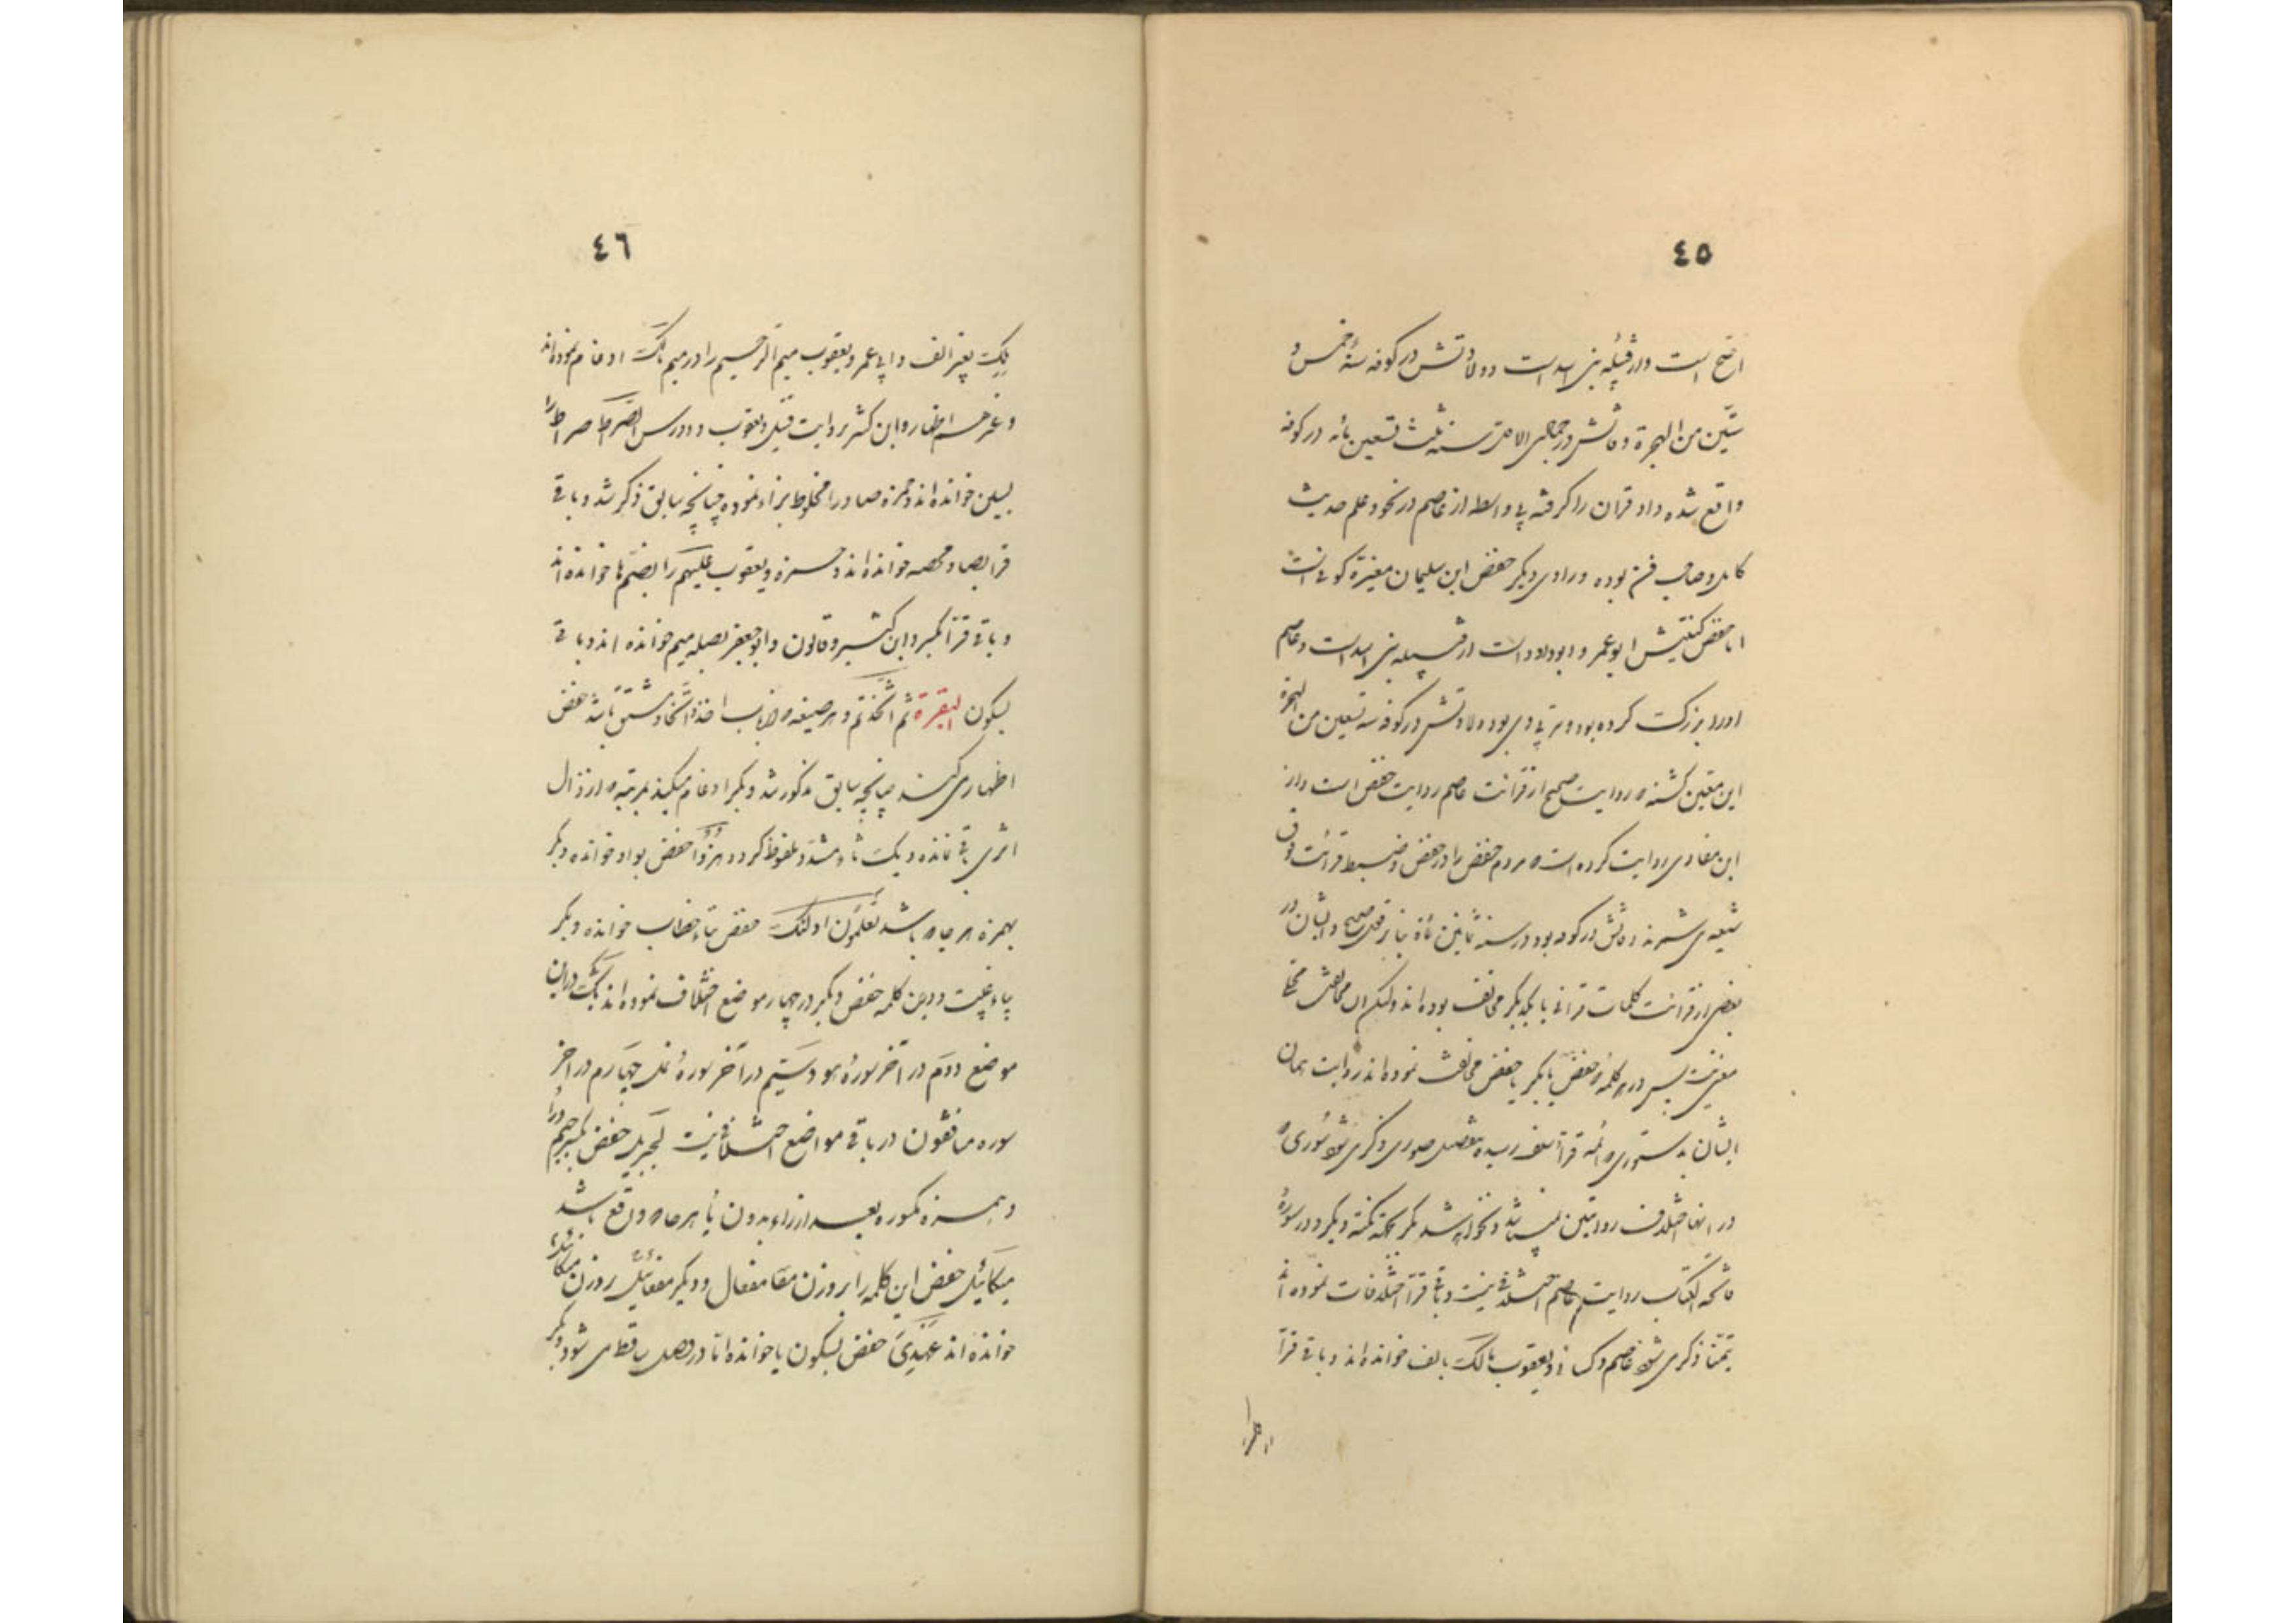 ٤٥
اصح است و از قبیله بنی اسد است و ولادتش در کوفه سنهٔ خمس و
ستین من الهجرة و در جمادی الاولی سنه ثلث تسعین مأه در کوفه
واقع شده و او قرآن را گرفته بی واسطه از عاصم در نحو و علم حدیث
کامل و صاحب فن بوده و راوی دیگر حفص ابن سلیمان مغیرة کوفی است
اما حفص کنیتش ابو عمر و ابو داود است از قبیله بنی اسد است و عاصم
او را بزرگ کرده بود و تربیتی وی بوده ولادتش در کوفه سنه تسعین من الهجرة
ابن معین گفته که روایت صحیح از قرائت عاصم روایت حفص است و از
ابن منادی روایت کرده است که مردم حفص را در حفظ و ضبط قرائت فوق
شعبه می شمرند وفاتش در کوفه بود در سنه ثمانین مأة بنا بر قول صحیح و ایشان در
بعضی از قرائت کلمات قرآنی با یکدیگر مخالف بوده اند ولیکن آن مخالفت
نیست پس در هر کلمه حفص با بکر یا حفص مخالفت نموده اند روایت همان
ایشان بدستوری که ائمه قرآء سلف رسیده ذکر می شود
در انها اختلاف روایتین نمیباشد و نخواهد شد مگر بجهة نکته دیگر و در سورهٔ
فاتحه الکتاب روایت عاصم اختلافی نیست و باقی قرآء اختلافات نموده اند
تیمنا ذکر می شود عاصم و کسائی و یعقوب مالک بالف خوانده اند و باقی قرآء
٤٦
ملک بغیر الف و ابی عمر و یعقوب میم الرحیم را در میم ملک ادغام نموده اند
و غیرهم اظهار و ابن کثیر بروایت قنبل و یعقوب الصراط صراط را
بسین خوانده اند و حمزه صاد را مخلوط بزاء نموده چنانچه سابق ذکر شد و باقی
قرآء بصاد مهمله خوانده اند و حمزه و یعقوب علیهم را بضم ها خوانده اند
و باقی قرآء بکسر و ابن کثیر و قالون و ابو جعفر بصله میم خوانده اند و باقی
بسکون البقرة ثم اتخذتم و هر صیغه که از باب اخذ و اتخاذ مشتق باشد حفص
اظهار می کند چنانچه سابق مذکور شد و بکر ادغام میکند بمرتبه که از ذال
اثری باقی نمانده و یک تاء مشدد ملفوظ گردد هزوا حفص بواو خوانده و بکر
بهمزه هر جا که باشد تعلمون اولئک حفص بتاء خطاب خوانده و بکر
بیاء غیبت و درین کلمه حفص و بکر در چهار موضع اختلاف نموده اند یک در این
موضع دوم در آخر سورهٔ هود سیم در آخر سورهٔ نمل چهارم در آخر
سوره منافقون در باقی مواضع اختلافی نیست لجبریل حفص بکسر جیم و را
و همزه مکسوره بعد از راء بدون یا هر جا که واقع باشد
میکائیل حفص این کلمه را بر وزن مفعال و بکر مفاعیل بر وزن میکائیل
خوانده اند عهدی حفص بسکون یا خوانده اما در وصل ساقط می شود و بکر